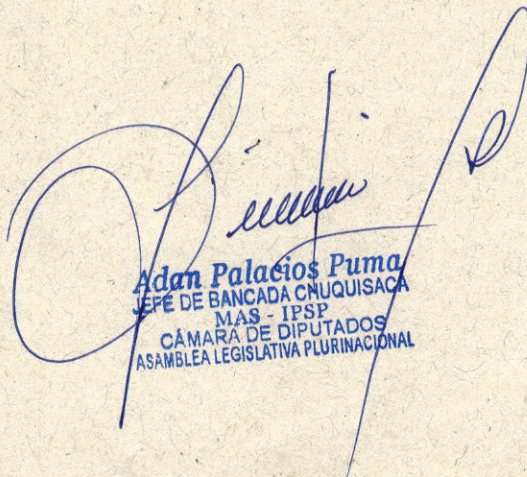 Adan Palacios Puma
JEFE DE BANCADA CHUQUISACA
MAS - IPSP
CÁMARA DE DIPUTADOS
ASAMBLEA LEGISLATIVA PLURINACIONAL